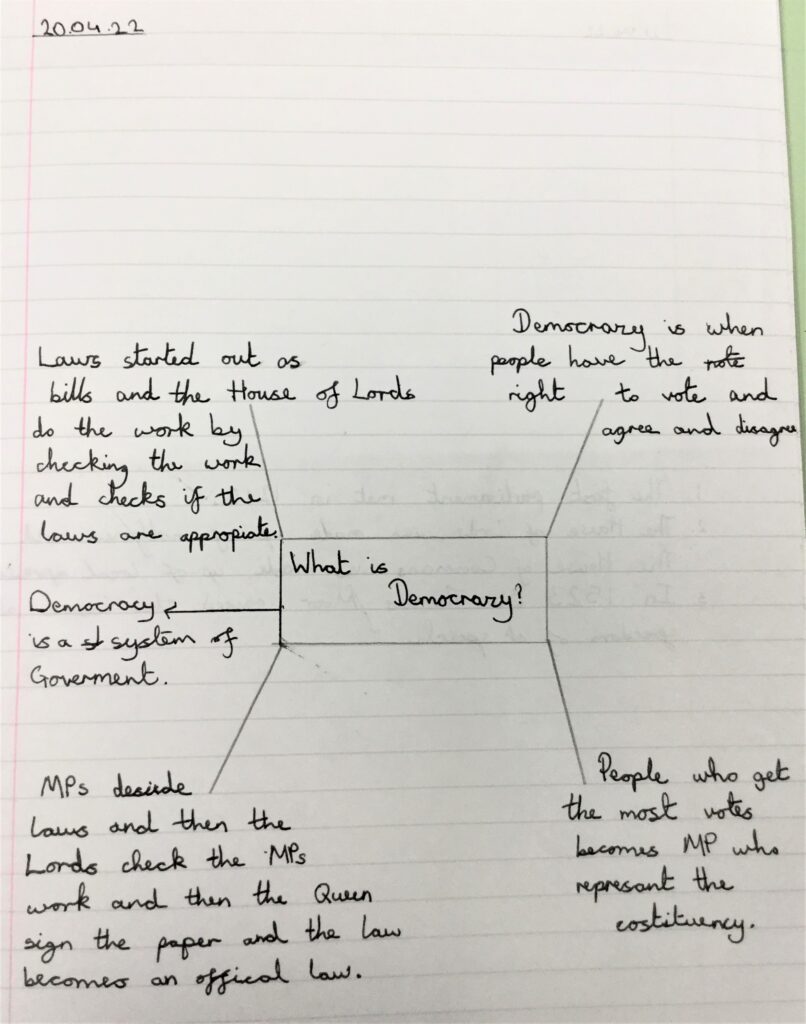 20.04.22
Laws started out as
bills and the House of Lords
do the work by
checking the work
and checks if the
laws are appropiate.
Democrazy is when
people have the note
right to vote and
agree and disagree
What is
Democrazy?
Democracy
is a st system of
Goverment.
MPs deside
laws and then the
Lords check the MPs
work and then the Queen
sign the paper and the law
becomes an offical law.
People who get
the most votes
becomes MP who
represant the
costituency.